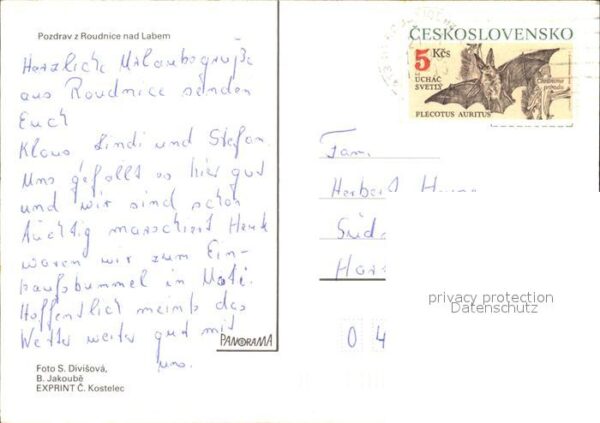 Pozdrav z Roudnice nad Labem
Herzliche Urlaubsgrüße
aus Roudnice senden
Euch
Klaus Sindi und Stefan.
Uns gefällt es hier gut
und wir sind schon
tüchtig marschiert Heute
waren wir zum Ein-
kaufsbummel in
Hoffentlich meint das
Wetter weiter gut mit
uns.
PANORAMA
Foto S. Divišová,
B. Jakoubě
EXPRINT Č. Kostelec
ČESKOSLOVENSKO
5 Kčs
UCHÁČ
SVETLÝ
PLECOTUS AURITUS
Chránime
prírodu
Fam.
Herbert
privacy protection
Datenschutz
0 4